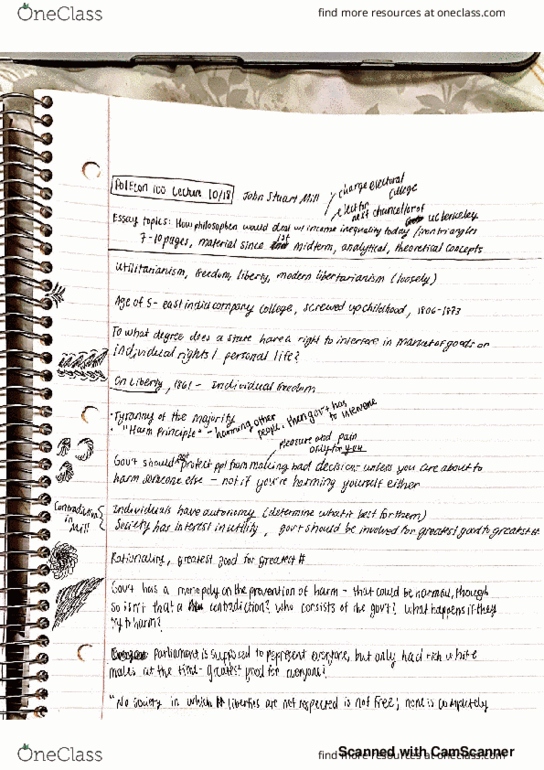 OneClass
find more resources at oneclass.com
PolEcon 100 Lecture 10/18 John Stuart Mill
change electoral college
elector of next chancellor of uc berkeley
Essay topics: How philosophers would deal w/ income inequality today / iron triangles
7-10 pages, material since 1st midterm, analytical, theoretical concepts
Utilitarianism, freedom, liberty, modern libertarianism (loosely)
Age of 5- east india company college, screwed up childhood, 1806-1873
To what degree does a state have a right to interfere in market of goods or
individual rights / personal life?
On Liberty, 1861 - Individual freedom
Tyranny of the majority
"Harm Principle" - harming other people, then gov't has to intervene
pleasure and pain only for you
Gov't should not protect ppl from making bad decisions unless you are about to
harm someone else - not if you're harming yourself either
Contradiction in Mill
Individuals have autonomy (determine what is best for them)
Society has interest in utility, gov't should be involved for greatest good to greatest #
Rationality, greatest good for greatest #
Gov't has a monopoly on the prevention of harm - that could be harmful, though
so isn't that a contradiction? Who consists of the gov't? What happens if they
try to harm?
Parliament is supposed to represent everyone, but only had rich white
males at the time- greatest good for everyone?
"No society in which liberties are not respected is not free; none is completely
OneClass
find more resources at oneclass.com
Scanned with CamScanner